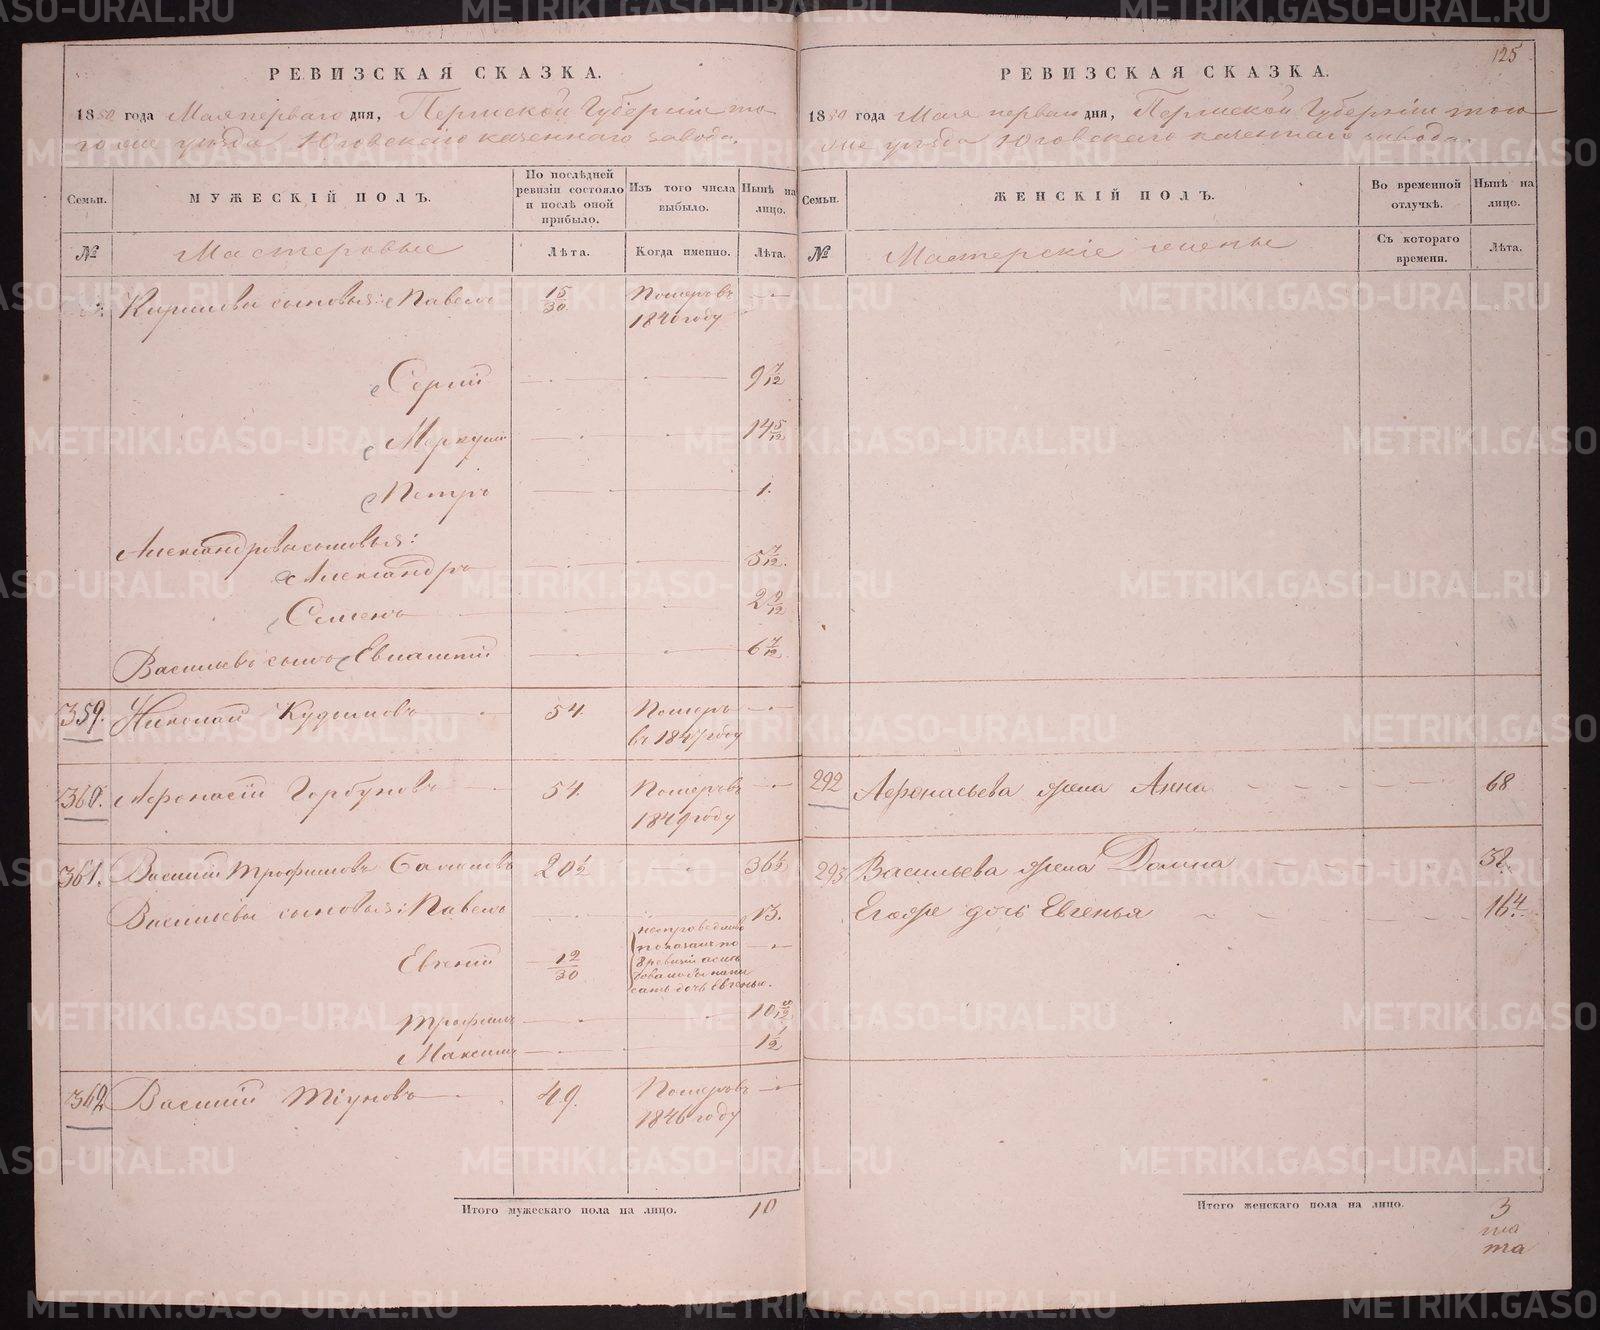 125
РЕВИЗСКАЯ СКАЗКА.
1850 года Мая перваго дня, Пермской Губернiи то-
го же уезда Юговскаго казеннаго завода.
Семьи.
МУЖЕСКIЙ ПОЛЪ.
По послѣдней ревизiи состояло и послѣ оной прибыло.
Изъ того числа выбыло.
Нынѣ на лицо.
№
Мастеровые
Лѣта.
Когда именно.
Лѣта.
сыновья: Павелъ 15/30 Померъ въ
184 году
Сергiй 9 7/12
Меркурiй 14 5/12
Петръ 1.
Александровы сыновья:
Александръ 5 7/12.
Семенъ 2 9/12
Васильевъ сынъ 6 7/12
359. Николай Кудымовъ 54. Померъ
въ 1847 году
360. Афонасiй Горбуновъ 54. Померъ въ
1849 году
361. Василiй Трофимовъ 20 1/2 36 1/2
Васильевы сыновья: Павелъ 13.
Евгенiй 12/30 несправедливо
показанъ по
8 ревизiи а слѣ
довало бы напи
сать дочь Евгенью.
Трофимъ 10 8/12
Максимъ 1 1/2
362 Василiй Тiуновъ 49. Померъ въ
1846 году
Итого мужескаго пола на лицо. 10
РЕВИЗСКАЯ СКАЗКА.
1850 года Мая перваго дня, Пермской Губернiи того
же уезда Юговскаго казеннаго завода.
Семьи.
ЖЕНСКIЙ ПОЛЪ.
Во временной отлучкѣ.
Нынѣ на лицо.
№
Мастерскiе жены
Съ котораго времени.
Лѣта.
292 Афонасьева жена Анна 68
293 Васильева жена Домна 38.
Егоже дочь Евгенья 16 4
Итого женскаго пола на лицо. 3
METRIKI.GASO-URAL.RU